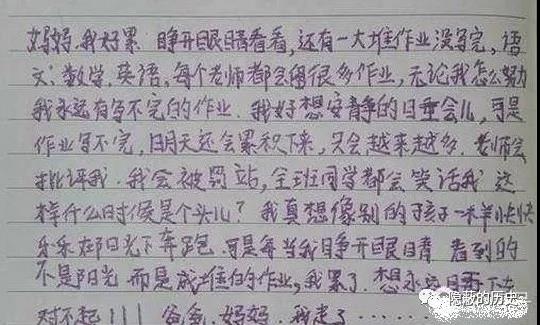 妈妈,我好累 睁开眼睛看看,还有一大堆作业没写完,语
文:数学,英语,每个老师都会留很多作业,无论我怎么努力
我永远有写不完的作业.我好想安静的睡会儿,可是
作业写不完,明天还会累积下来,只会越来越多.老师会
批评我.我会被罚站,全班同学都会笑话我 这
样什么时候是个头儿?我真想像别的孩子一样快快
乐乐 在阳光下奔跑 可是每当我睁开眼睛 看到的
不是阳光 而是成堆的作业,我累了.想永远睡下去
对不起!!!爸爸,妈妈 我走了······
隐蔽的历史